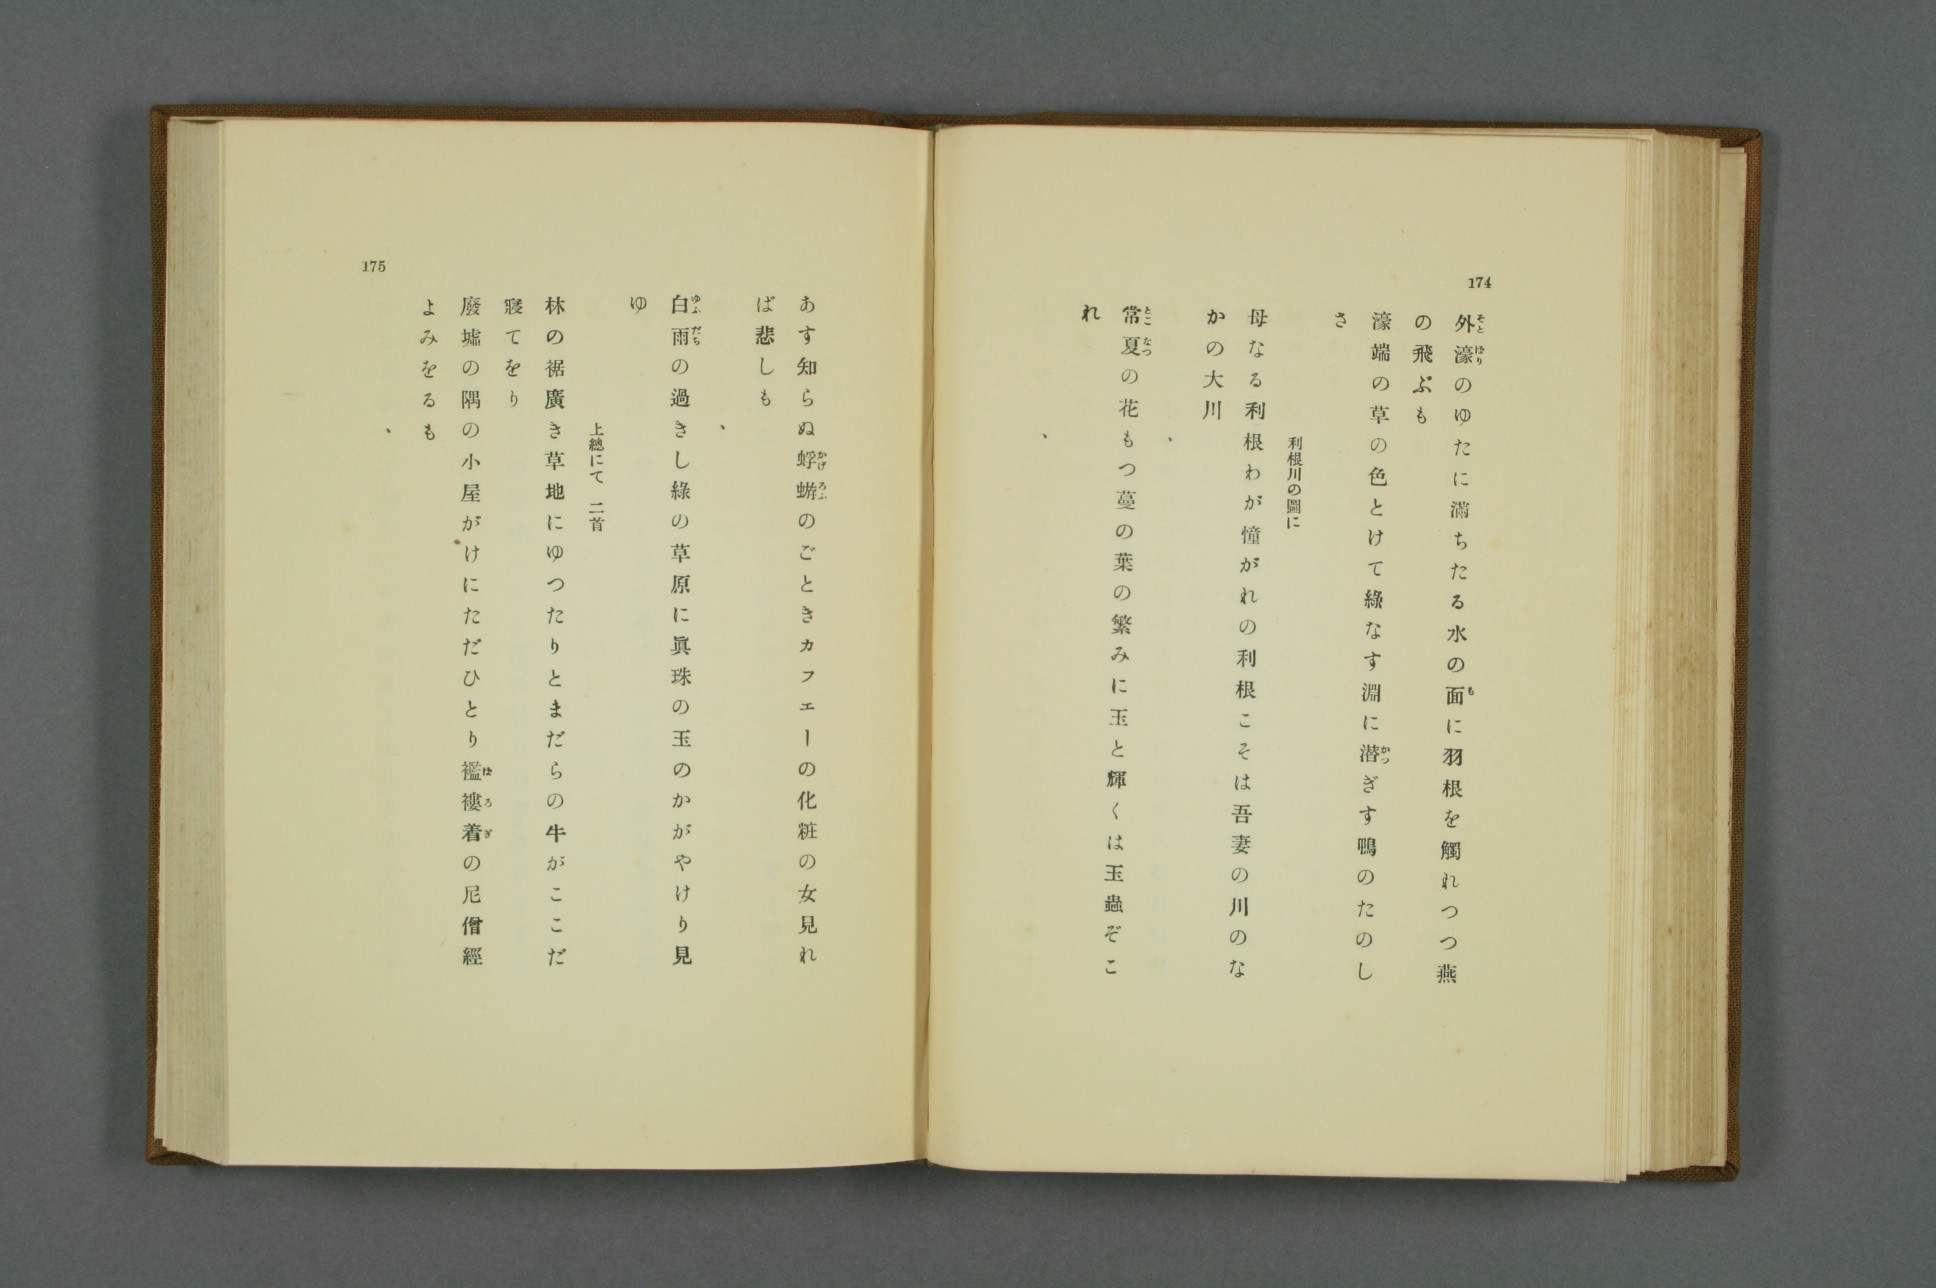 174
外濠のゆたに滿ちたる水の面に羽根を觸れつつ燕
の飛ぶも
濠端の草の色とけて綠なす淵に潜ぎす鴨のたのし
さ
利根川の圖に
母なる利根わが憧がれの利根こそは吾妻の川のな
かの大川
、
常夏の花もつ蔓の葉の繁みに玉と輝くは玉蟲ぞこ
れ
、
175
あす知らぬ蜉蝣のごときカフェーの化粧の女見れ
ば悲しも
、
白雨の過きし綠の草原に眞珠の玉のかがやけり見
ゆ
上總にて　二首
林の裾廣き草地にゆつたりとまだらの牛がここだ
寢てをり
廢墟の隅の小屋がけにただひとり襤褸着の尼僧經
よみをるも
、